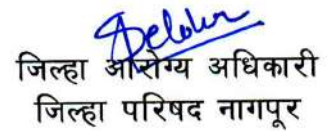 जिल्हा आरोग्य अधिकारी
जिल्हा परिषद नागपूर